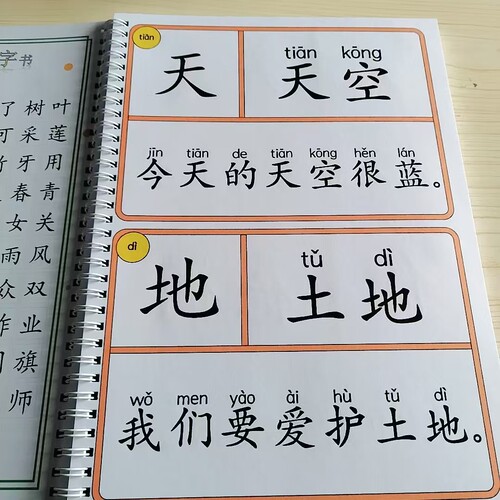 字书
了树叶
可采莲
牙用
春青
女关
雨风
众双
作业
旗
师
tiān
天
tiān kōng
天空
jīn tiān de tiān kōng hěn lán
今天的天空很蓝。
dì
地
tǔ dì
土地
wǒ men yào ài hù tǔ dì
我们要爱护土地。